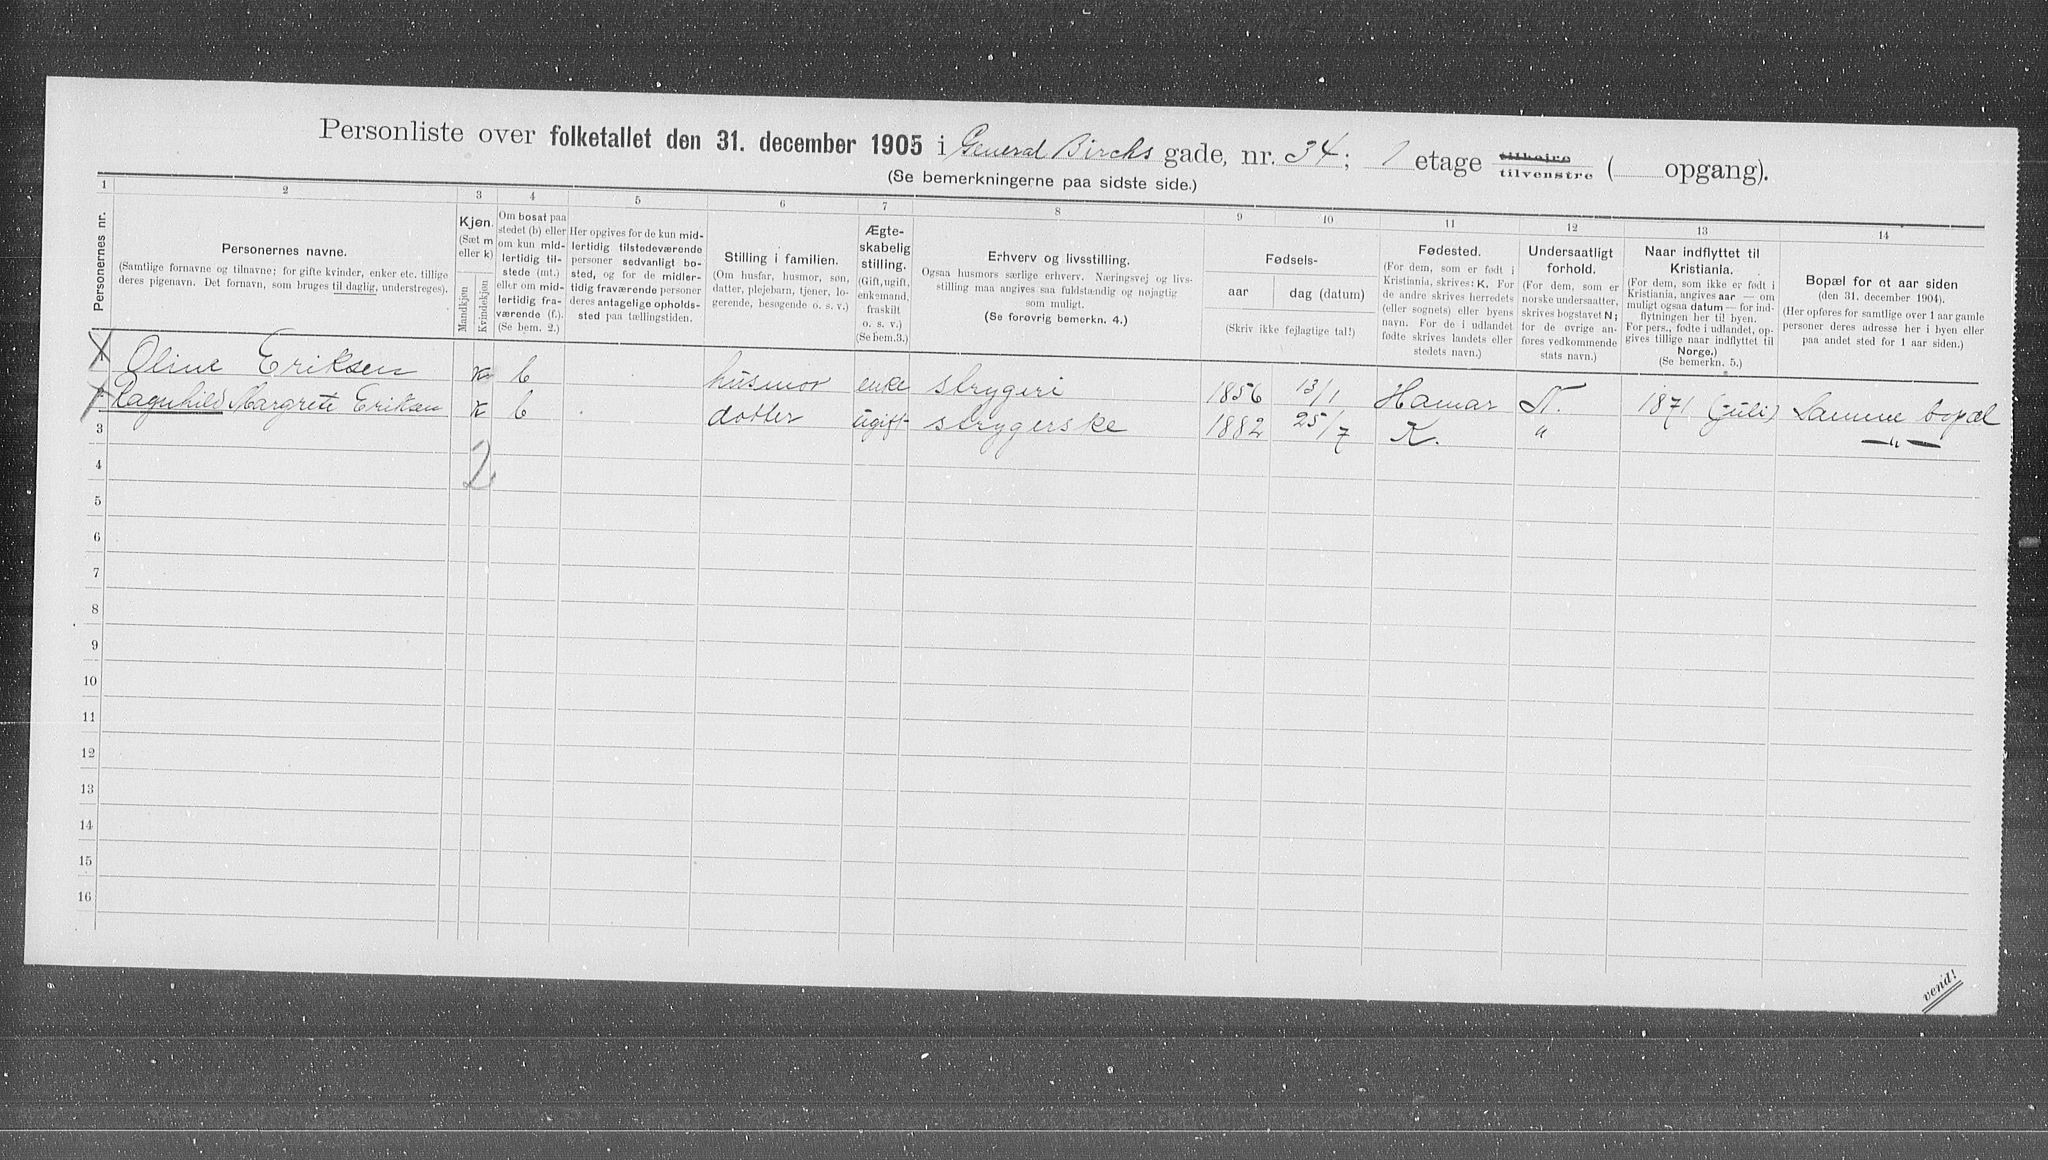 Personliste over folketallet den 31. december 1905 i General Birchs gade, nr. 34; 1 etage tilhøire tilvenstre ( opgang).
(Se bemerkningerne paa sidste side.)
1 2 3 4 5 6 7 8 9 10 11 12 13 14
Personernes nr.
Personernes navne.
(Samtlige fornavne og tilnavne; for gifte kvinder, enker etc. tillige
deres pigenavn. Det fornavn, som bruges til daglig, understreges).
Kjøn.
(Sæt m
eller k)
Mandkjøn
Kvindekjøn
Om bosat paa
stedet (b) eller
om kun mid-
lertidig til-
stede (mt.)
eller om mid-
lertidig fra-
værende (f.).
(Se bem. 2.)
Her opgives for de kun mid-
lertidig tilstedeværende
personer sedvanligt bo-
sted, og for de midler-
tidig fraværende personer
deres antagelige opholds-
sted paa tællingstiden.
Stilling i familien.
(Om husfar, husmor, søn,
datter, plejebarn, tjener, lo-
gerende, besøgende o. s. v.)
Ægte-
skabelig
stilling.
(Gift, ugift,
enkemand,
fraskilt
o. s. v.)
(Se bem. 3.)
Erhverv og livsstilling.
Ogsaa husmors særlige erhverv. Næringsvej og livs-
stilling maa angives saa fuldstændig og nøjagtig
som muligt.
(Se forøvrig bemerkn. 4.)
Fødsels-
aar
dag (datum)
(Skriv ikke fejlagtige tal!)
Fødested.
(For dem, som er født i
Kristiania, skrives: K. For
de andre skrives herredets
(eller sognets) eller byens
navn. For de i udlandet
fødte skrives landets eller
stedets navn.)
Undersaatligt
forhold.
(For dem, som er
norske undersaatter,
skrives bogstavet N;
for de øvrige an-
føres vedkommende
stats navn.)
Naar indflyttet til
Kristiania.
(For dem, som ikke er født i
Kristiania, angives aar — om
muligt ogsaa datum — for ind-
flytningen her til byen.
For pers., fødte i udlandet, op-
gives tillige naar indflyttet til
Norge.)
(Se bemerkn. 5.)
Bopæl for et aar siden
(den 31. december 1904).
(Her opføres for samtlige over 1 aar gamle
personer deres adresse her i byen eller
paa andet sted for 1 aar siden.)
1 Oline Eriksen k b husmor enke strygeri 1856 13/1 Hamar N. 1871 (juli) Samme bopæl
2 Ragnhild Margrete Eriksen k b dotter ugift strygerske 1882 25/7 K. " — " —
3
2
4
5
6
7
8
9
10
11
12
13
14
15
16
vend!